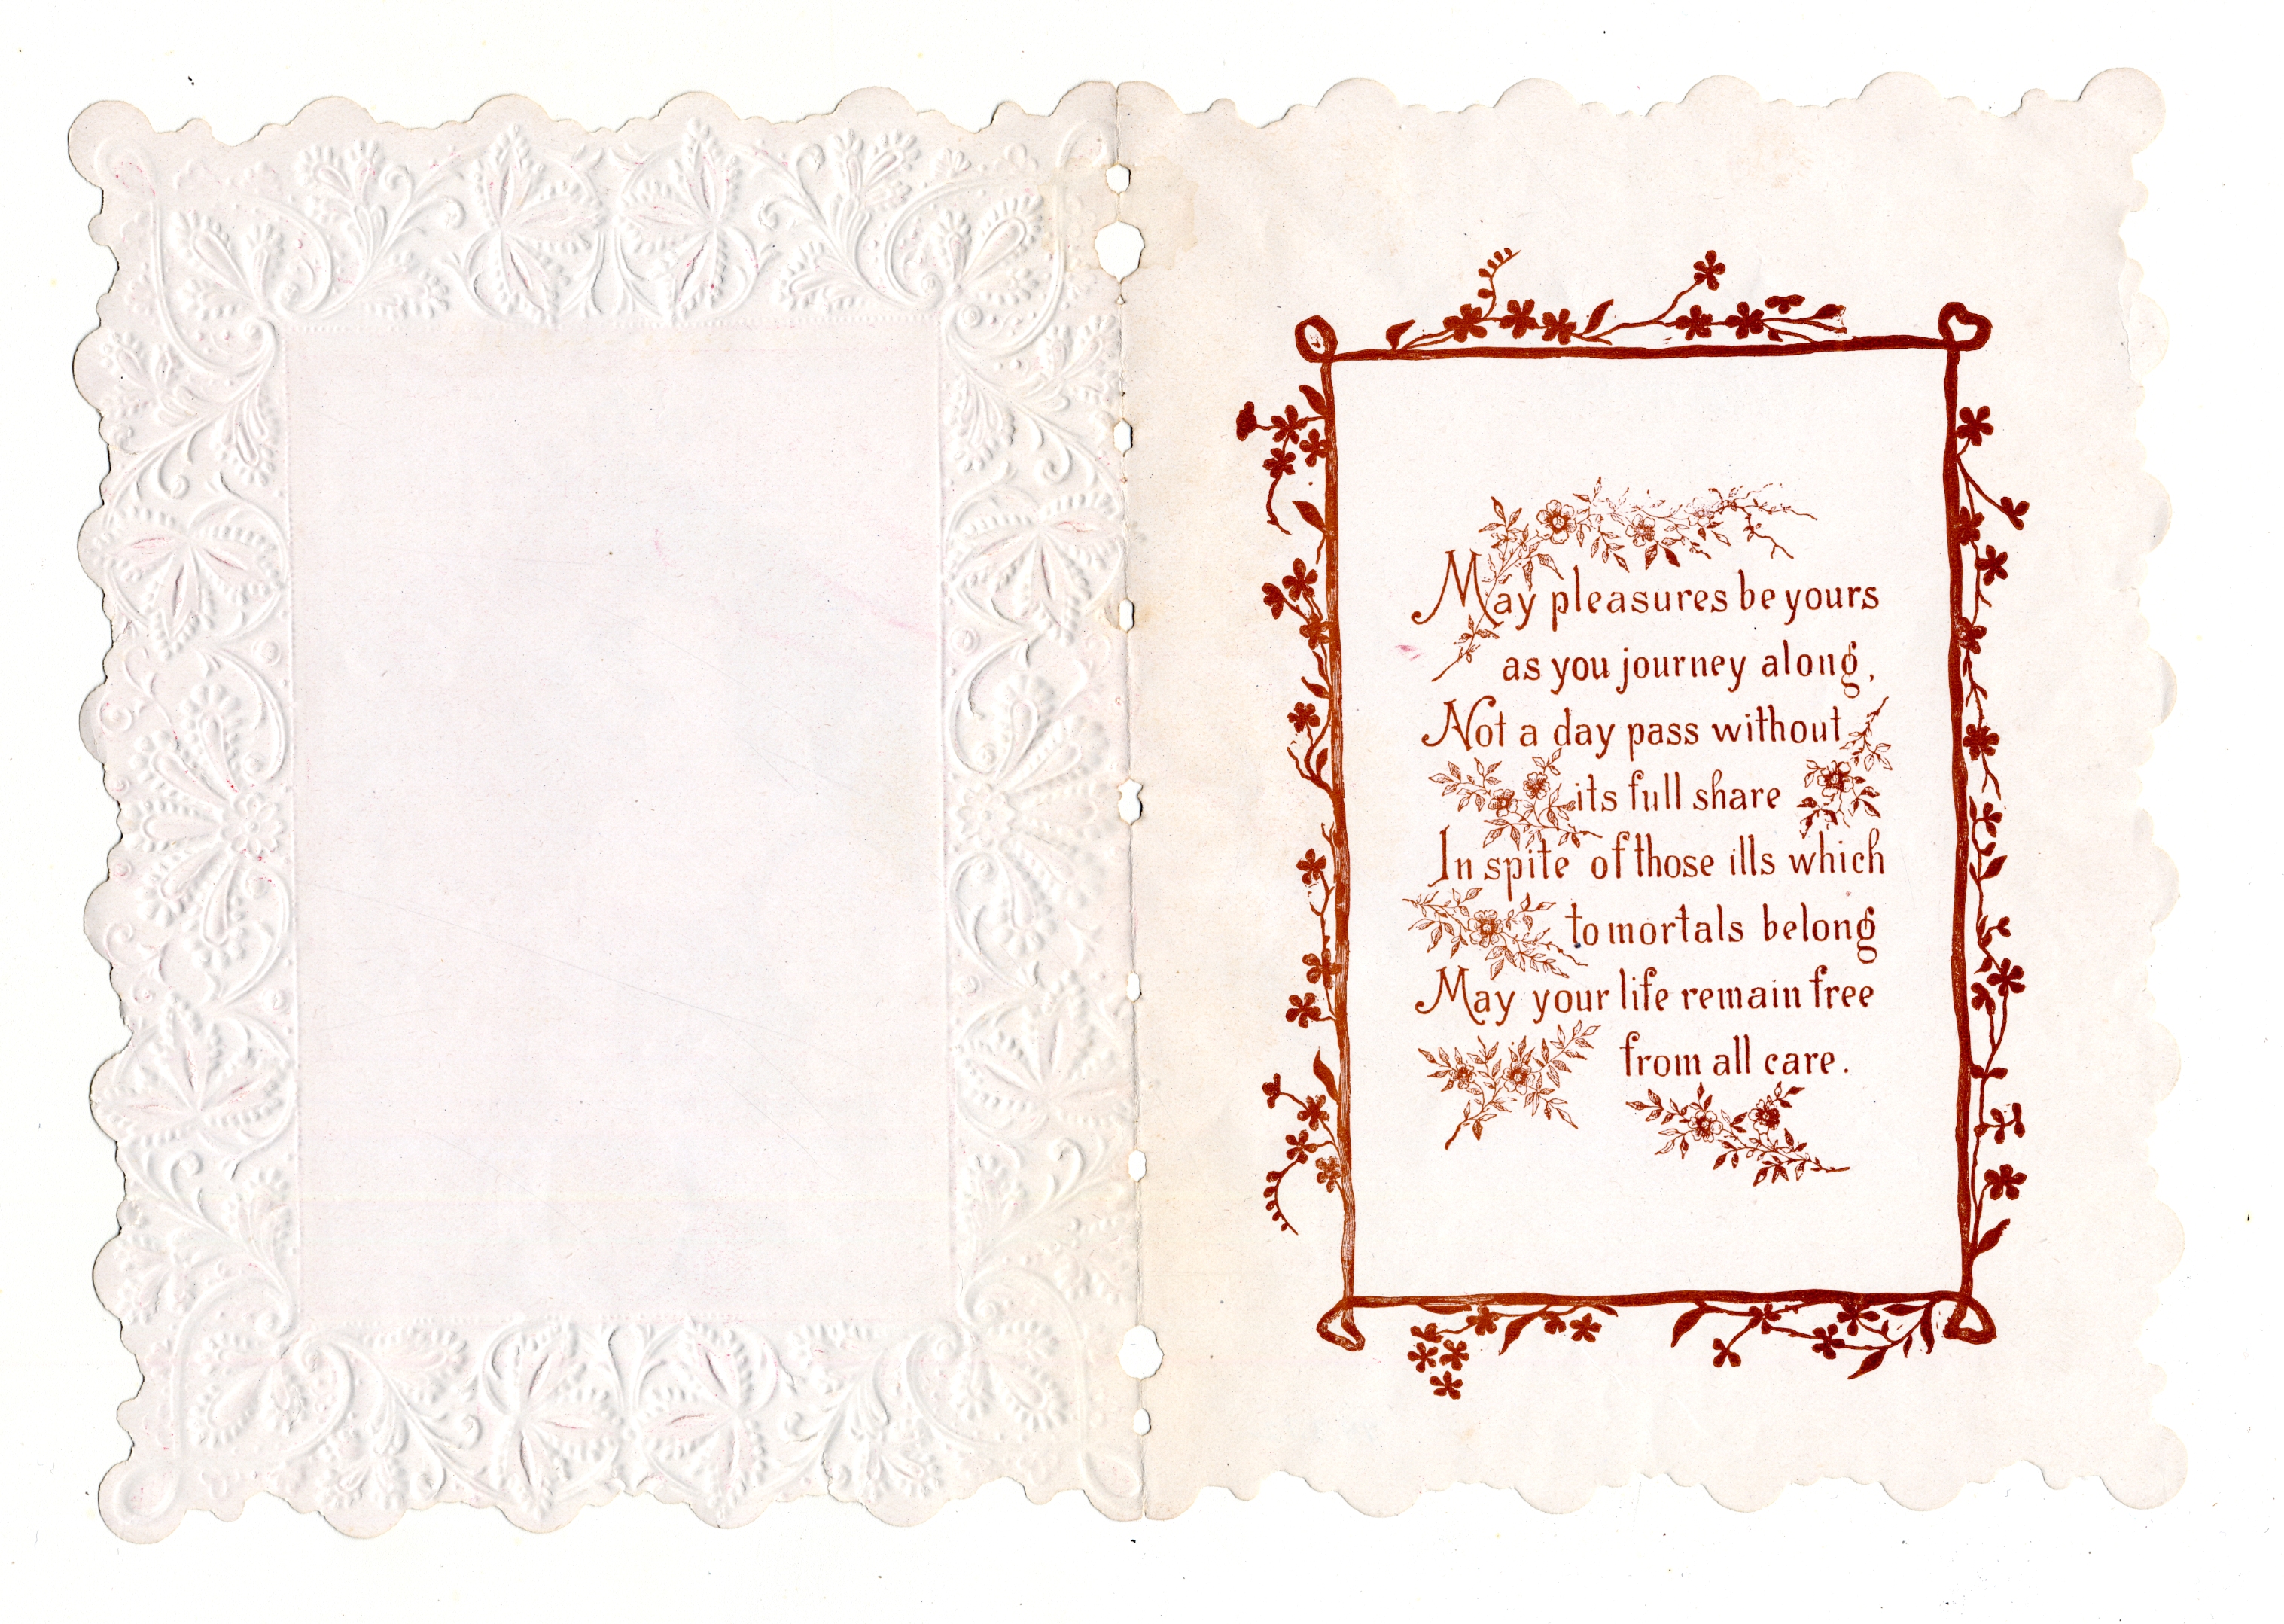 May pleasures be yours
as you journey along,
Not a day pass without
its full share
In spite of those ills which
to mortals belong
May your life remain free
from all care.